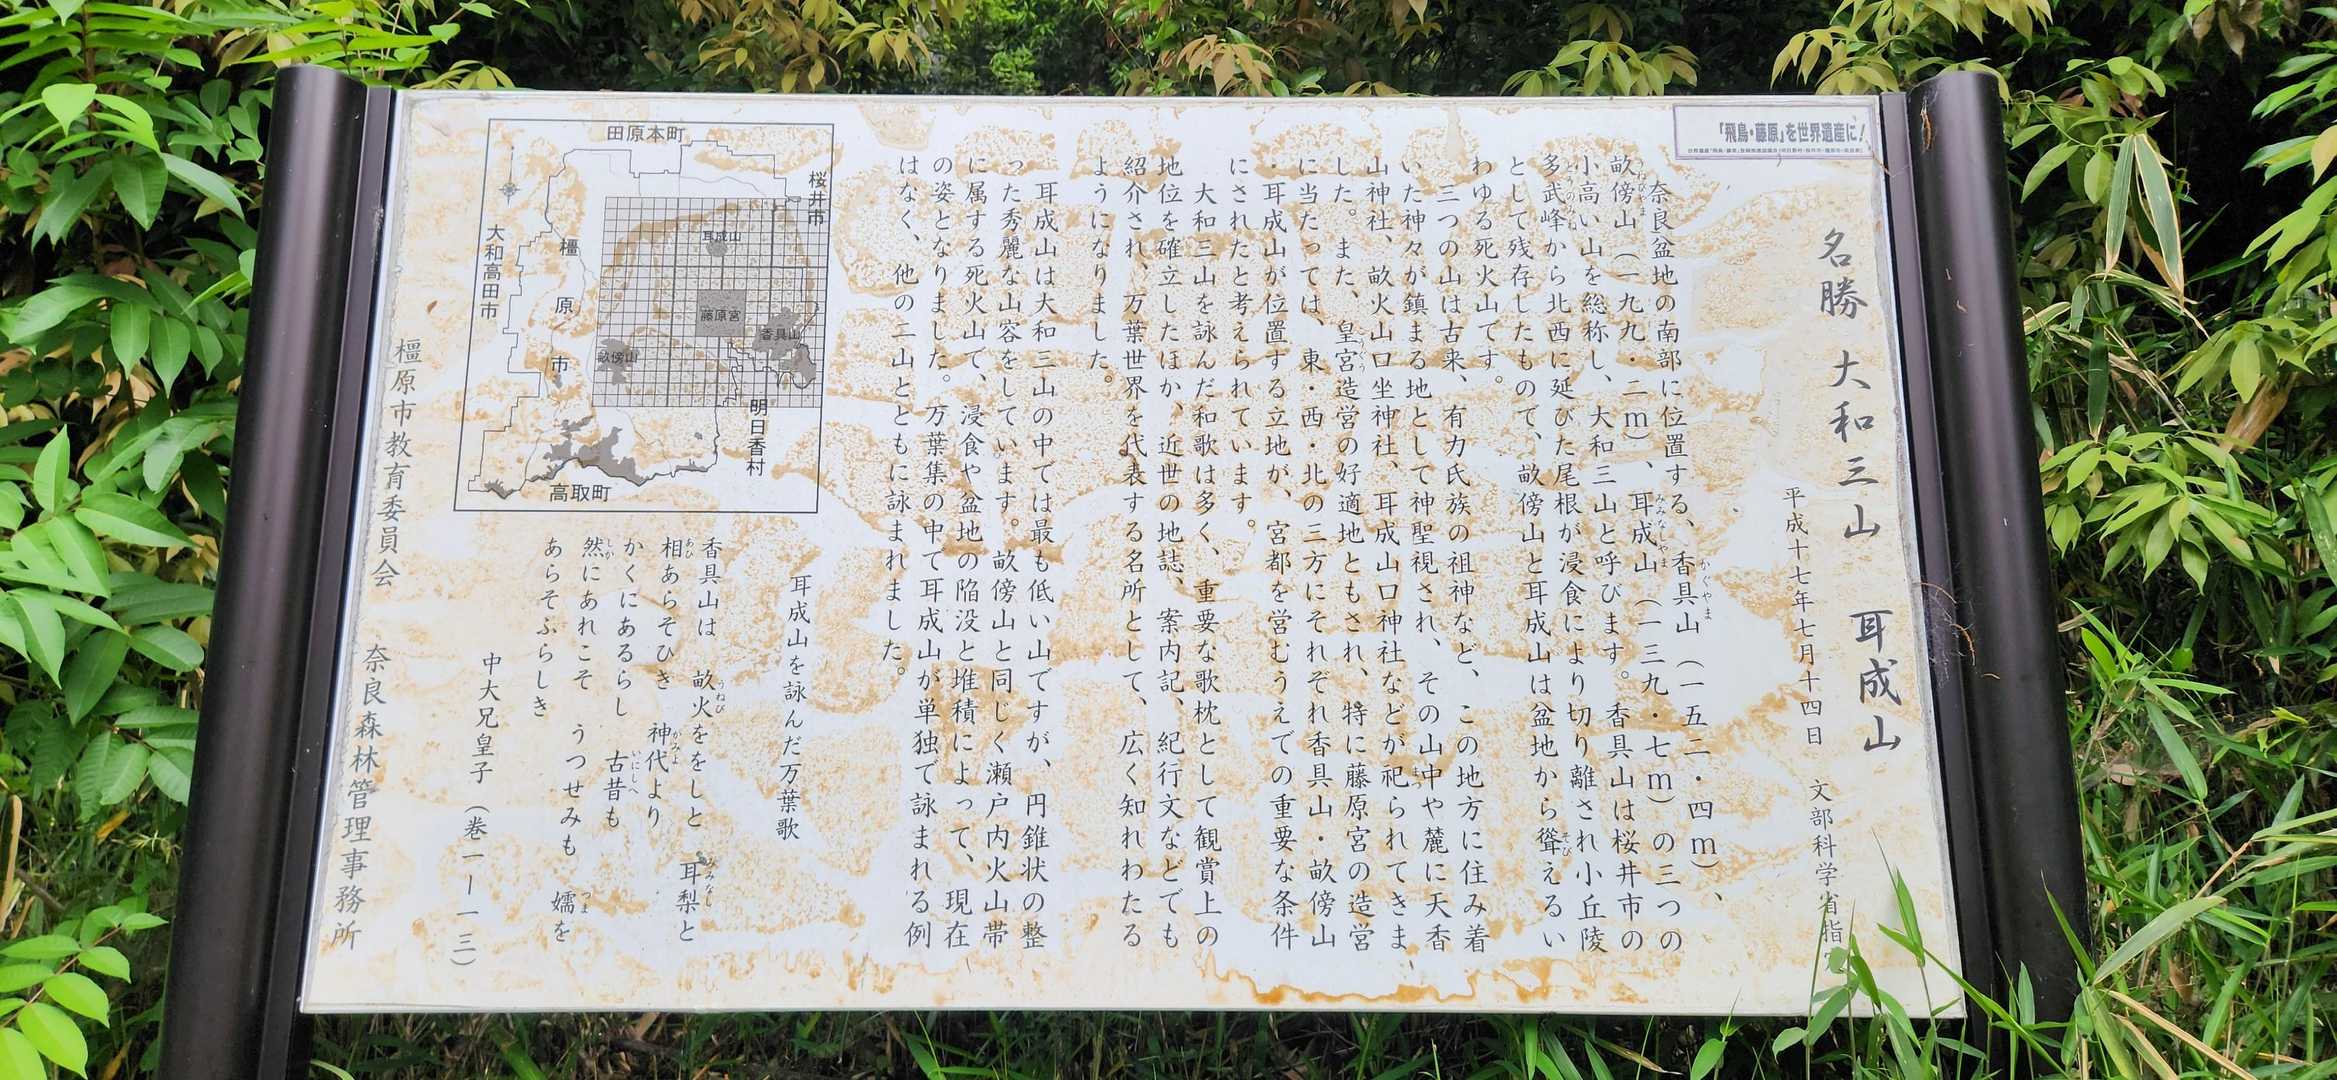 「飛鳥・藤原」を世界遺産に!
名勝 大和三山 耳成山
平成十七年七月十四日 文部科学省指
奈良盆地の南部に位置する、香具山(一五二・四m)、
畝傍山(一九九・二m)、耳成山(一三九・七m)の三つの
小高い山を総称し、大和三山と呼びます。香具山は桜井市の
多武峰から北西に延びた尾根が浸食により切り離され小丘陵
として残存したもので、畝傍山と耳成山は盆地から聳えるい
わゆる死火山です。
三つの山は古来、有力氏族の祖神など、この地方に住み着
いた神々が鎮まる地として神聖視され、その山中や麓に天香
山神社、畝火山口坐神社、耳成山口神社などが祀られてきま
した。また、皇宮造営の好適地ともされ、特に藤原宮の造営
に当たっては、東・西・北の三方にそれぞれ香具山・畝傍山
・耳成山が位置する立地が、宮都を営むうえでの重要な条件
にされたと考えられています。
大和三山を詠んだ和歌は多く、重要な歌枕として観賞上の
地位を確立したほか、近世の地誌、案内記、紀行文などでも
紹介され、万葉世界を代表する名所として、広く知れわたる
ようになりました。
耳成山は大和三山の中では最も低い山ですが、円錐状の整
った秀麗な山容をしています。畝傍山と同じく瀬戸内火山帯
に属する死火山で、浸食や盆地の陥没と堆積によって、現在
の姿となりました。万葉集の中で耳成山が単独で詠まれる例
はなく、他の二山とともに詠まれました。
耳成山を詠んだ万葉歌
香具山は 畝火ををしと 耳梨と
相あらそひき 神代より
かくにあるらし 古昔も
然にあれこそ うつせみも 嬬を
あらそふらしき
中大兄皇子 (巻一ー一三)
田原本町
桜井市
大和高田市
橿原市
耳成山
藤原宮
香具山
畝傍山
明日香村
高取町
橿原市教育委員会 奈良森林管理事務所